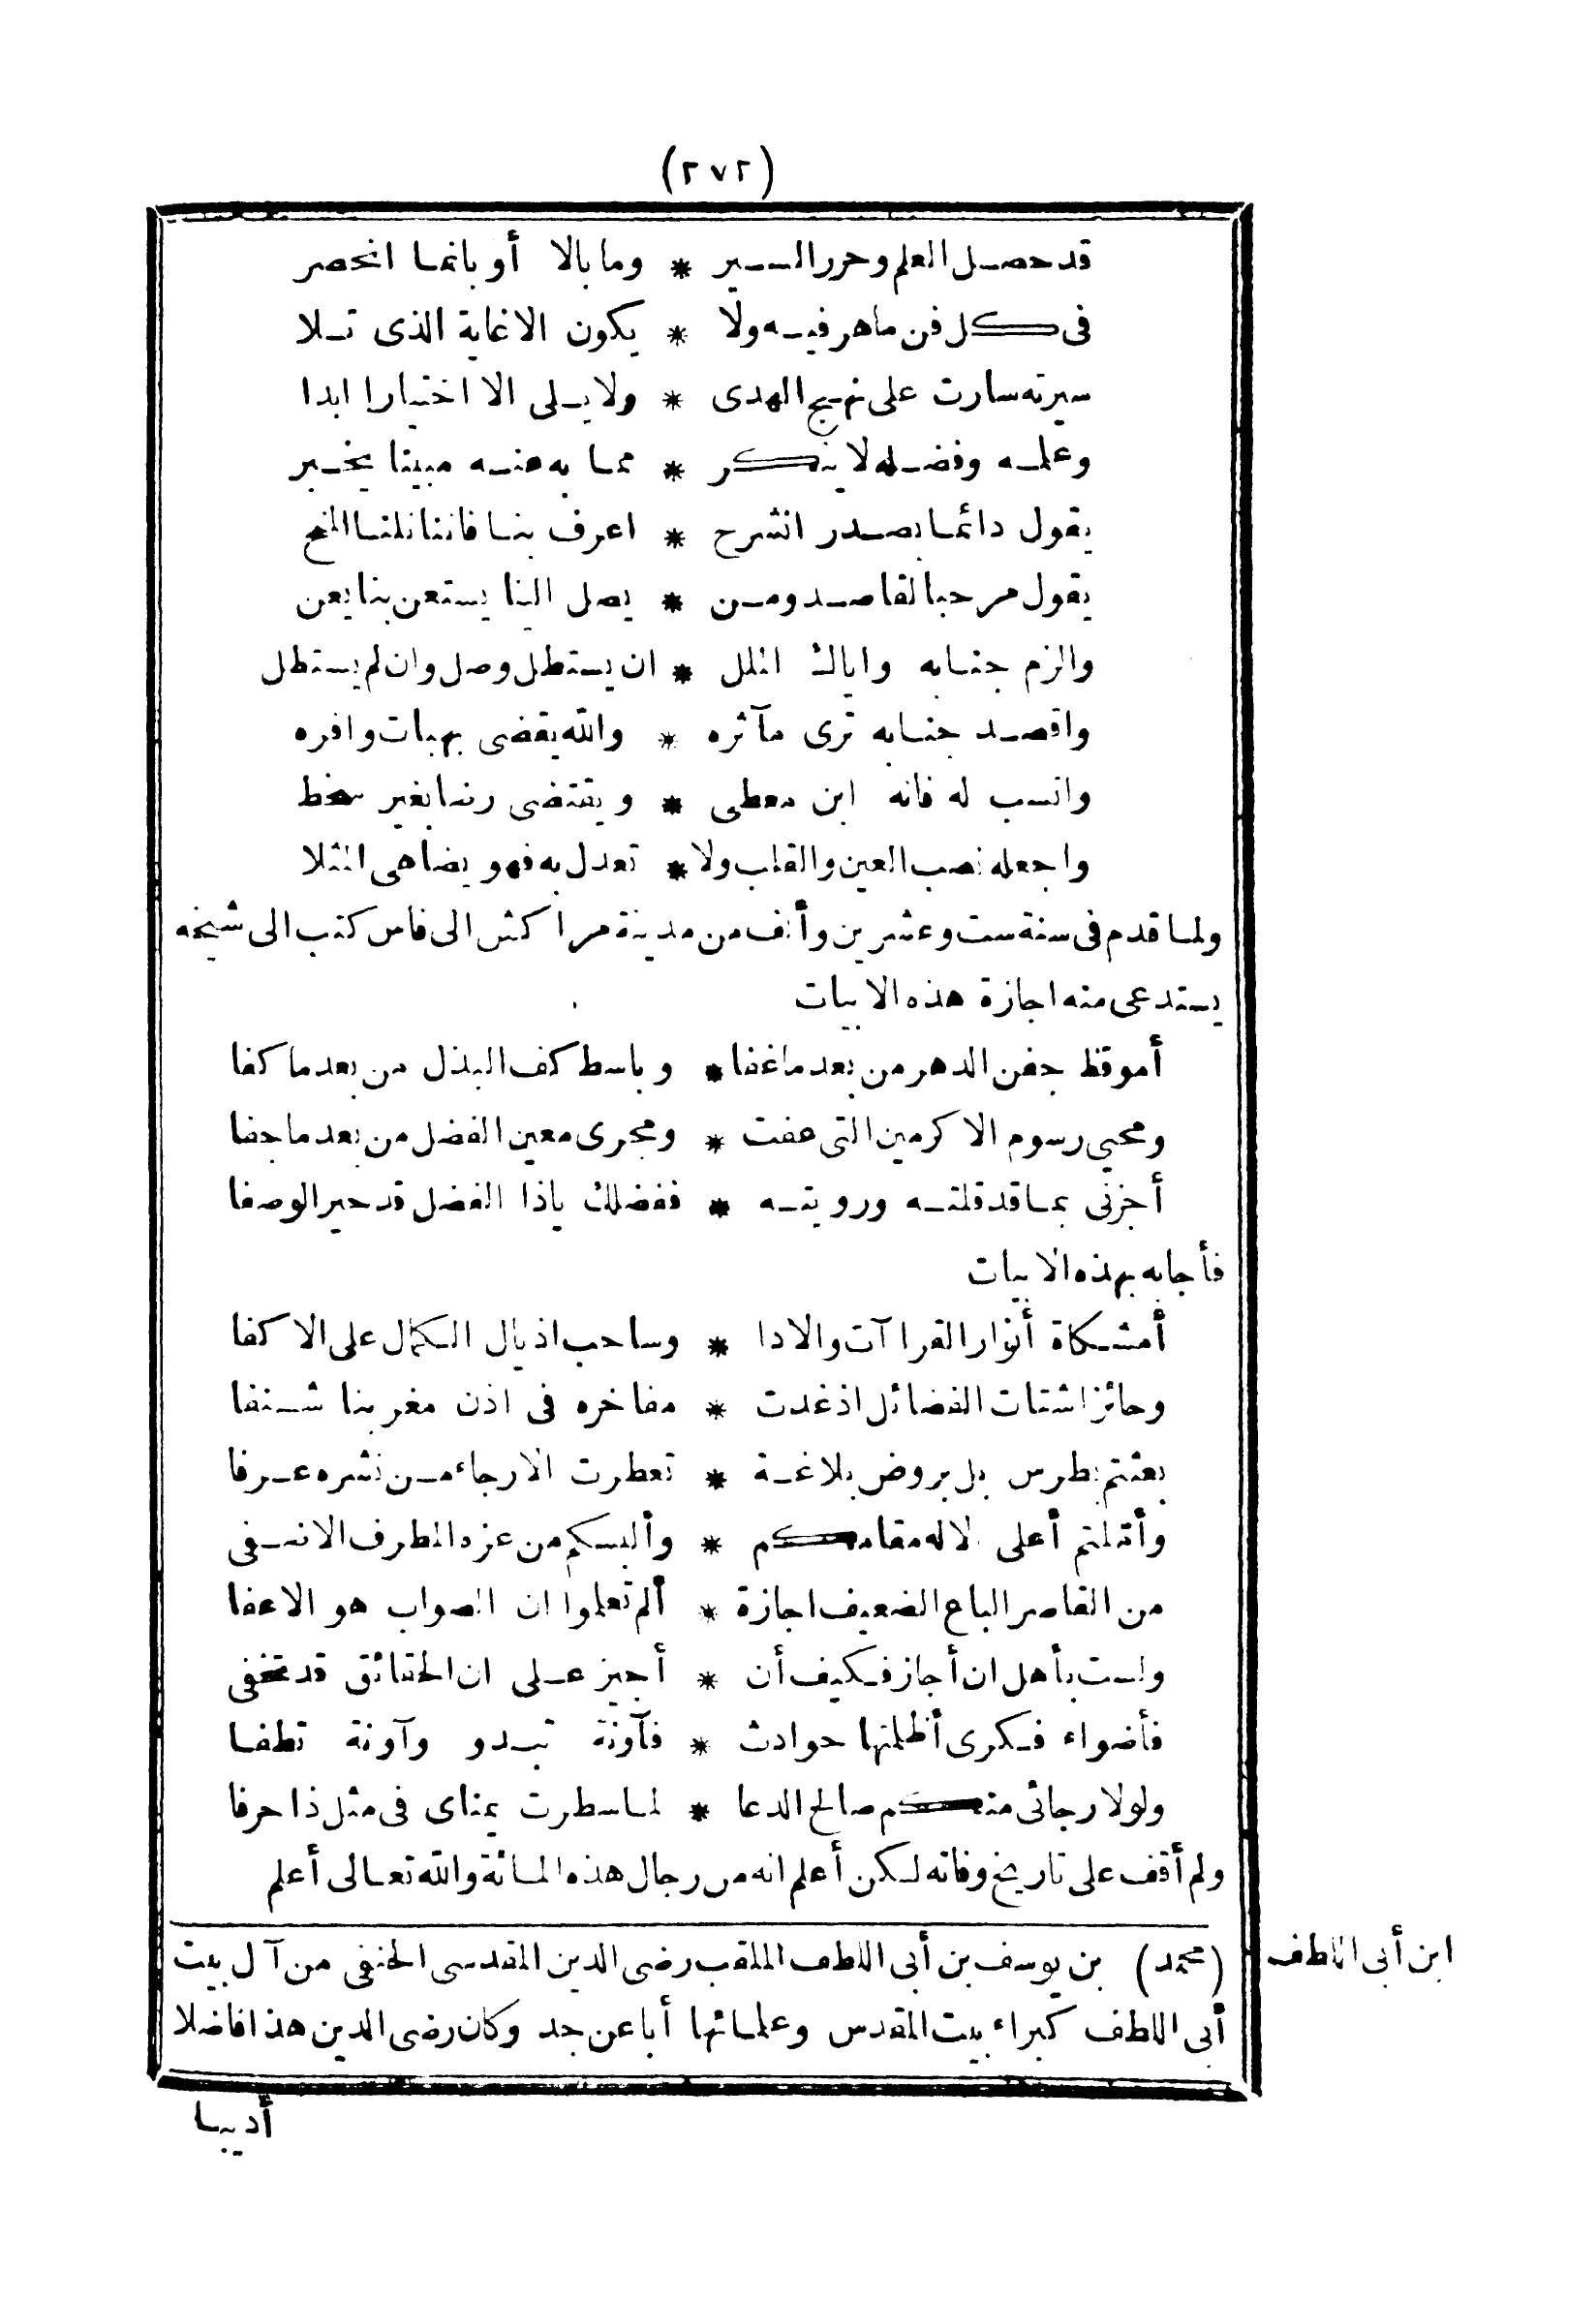 (٢٧٢)
قد حصل العلم وحرر السير * وما بالا أو بانما انحصر
فى كل فن ماهر فيه ولا * يكون الا غاية الذى تلا
سيرته سارت على نهج الهدى * ولا يلى الا اختيارا ابدا
وعلمه وفضله لا ينكر * مما به عنه مبينا يخبر
يقول دائما بصدر انشرح * اعرف بنا فاننا نلنا المنح
يقول مرحبا لقاصد ومن * يصل الينا يستعن بنا يعن
والزم جنابه واياك الملل * ان يستطل وصل وان لم يستطل
واقصد جنابه ترى مآثره * والله يقضى بهبات وافره
وانسب له فانه ابن معطى * ويقتضى رضا بغير سخط
واجعله نصب العين والقلب ولا * تعدل به فهو يضاهى المثلا
ولما قدم فى سنة ست وعشرين وألف من مدينة مراكش الى فاس كتب الى شيخه
يستدعى منه اجازة هذه الابيات
أموقظ جفن الدهر من بعد ما غفا * وباسط كف البذل من بعد ما كفا
ومحيى رسوم الاكرمين التى عفت * ومجرى معين الفضل من بعد ما جفا
أجزنى بما قد قلته ورويته * ففضلك ياذا الفضل قد حير الوصفا
فأجابه بهذه الابيات
أمشكاة أنوار القراآت والادا * وساحب اذيال الكمال على الاكفا
وحائز اشتات الفضائل اذ غدت * مفاخره فى اذن مغربنا شنفا
بعثتم بطرس بل بروض بلاغة * تعطرت الارجاء من نشره عرفا
وأقلتم أعلى الاله مقامكم * وألبسكم من عزه المطرف الاضفى
من القاصر الباع الضعيف اجازة * ألم تعلموا ان الصواب هو الاعفا
ولست بأهل ان أجاز فكيف أن * أجيز على ان الحقائق قد تخفى
فأضواء فكرى أظلمتها حوادث * فآونة تبدو وآونة تطفا
ولولا رجائى منكم صالح الدعا * لما سطرت يمناى فى مثل ذا حرفا
ولم أقف على تاريخ وفاته لكن أعلم انه من رجال هذه المائة والله تعالى أعلم
ابن أبى اللطف
(محمد) بن يوسف بن أبى اللطف الملقب رضى الدين المقدسى الحنفى من آل بيت
أبى اللطف كبراء بيت المقدس وعلمائها أبا عن جد وكان رضى الدين هذا فاضلا
أديبا